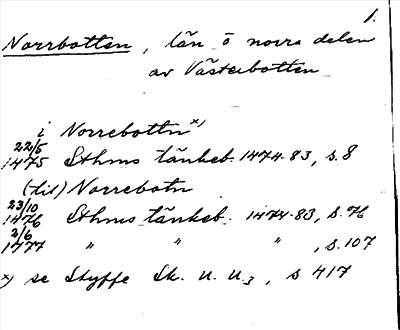 1.
Norrbotten, län o norra delen
av Västerbotten
i Norrebottn x)
22/5
1475 Sthms tänkeb. 1474-83, s. 8
(till) Norrebotn
23/10
1476 Sthms tänkeb. 1474-83, s. 76
2/6
1477 " " " , s. 107
x) se Styffe Sk. U. U.3, s 417